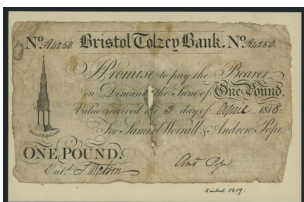 No. 24250 Bristol Tolzey Bank. No. 24250
I Promise to pay the Bearer
on Demand the Sum of One Pound
Value received the 3 day of April 1818
For Samuel Worrall & Andrew Pope
ONE POUND.
And Pope
Ent.d
failed 1819.